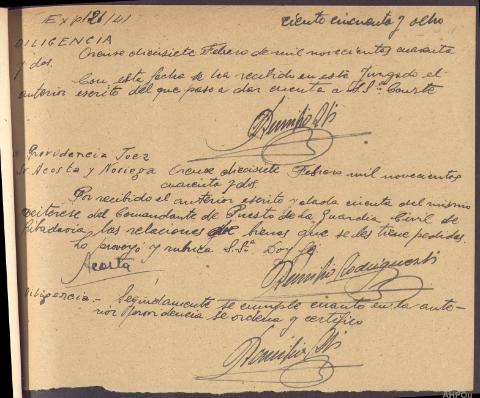 Exp 126/41
ciento cincuenta y ocho
DILIGENCIA
Orense diecisiete Febrero de mil novecientos cuarenta
y dos.
Con esta fecha se ha recibido en este Juzgado el
anterior escrito del que paso a dar cuenta a S.Sª. Conste
Providencia Juez
Sr. Acosta y Noriega
Orense diecisiete Febrero mil novecientos
cuarenta y dos.
Por recibido el anterior escrito y dada cuenta del mismo
reiterese del Comandante de Puesto de la Guardia Civil de
Ribadavia, las relaciones de bienes que se les tiene pedidas.
Lo proveyó y rubrica S.Sª. Doy fe
Acosta
Diligencia.- Seguidamente se cumple cuanto en la ante-
rior Providencia se ordena y certifico
AHPOu